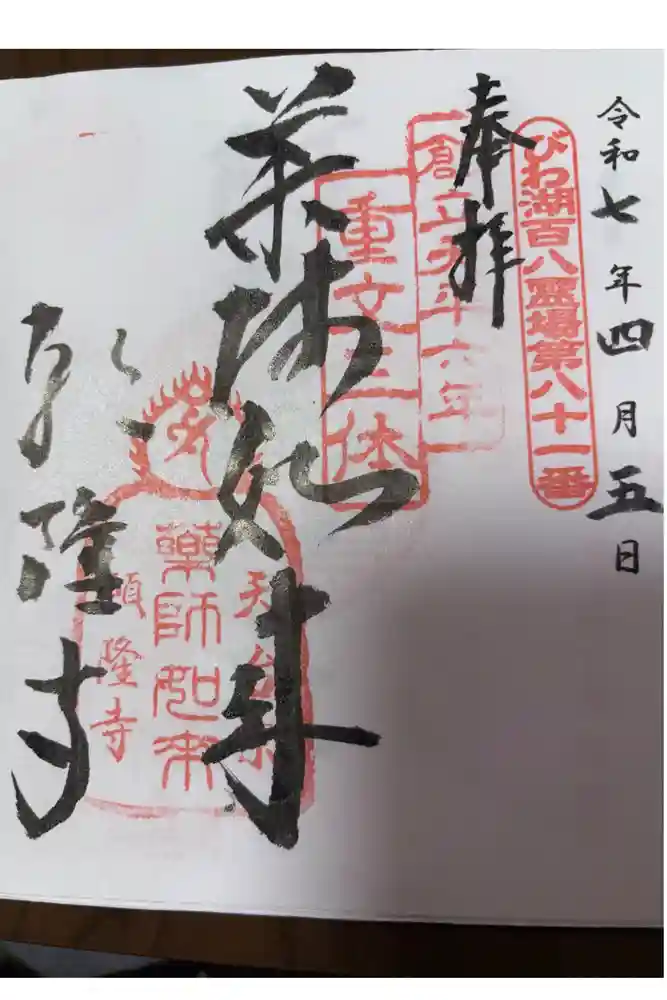 令和七年四月五日
びわ湖百八霊場第八十一番
奉拝
重文三体
薬師如来
天台宗
薬師如来
願隆寺
隆寺